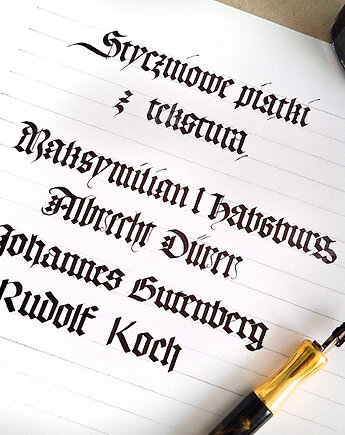 Styczniowe piątki
z teksturą
Maksymilian I Habsburg
Albrecht Dürer
Johannes Gutenberg
Rudolf Koch